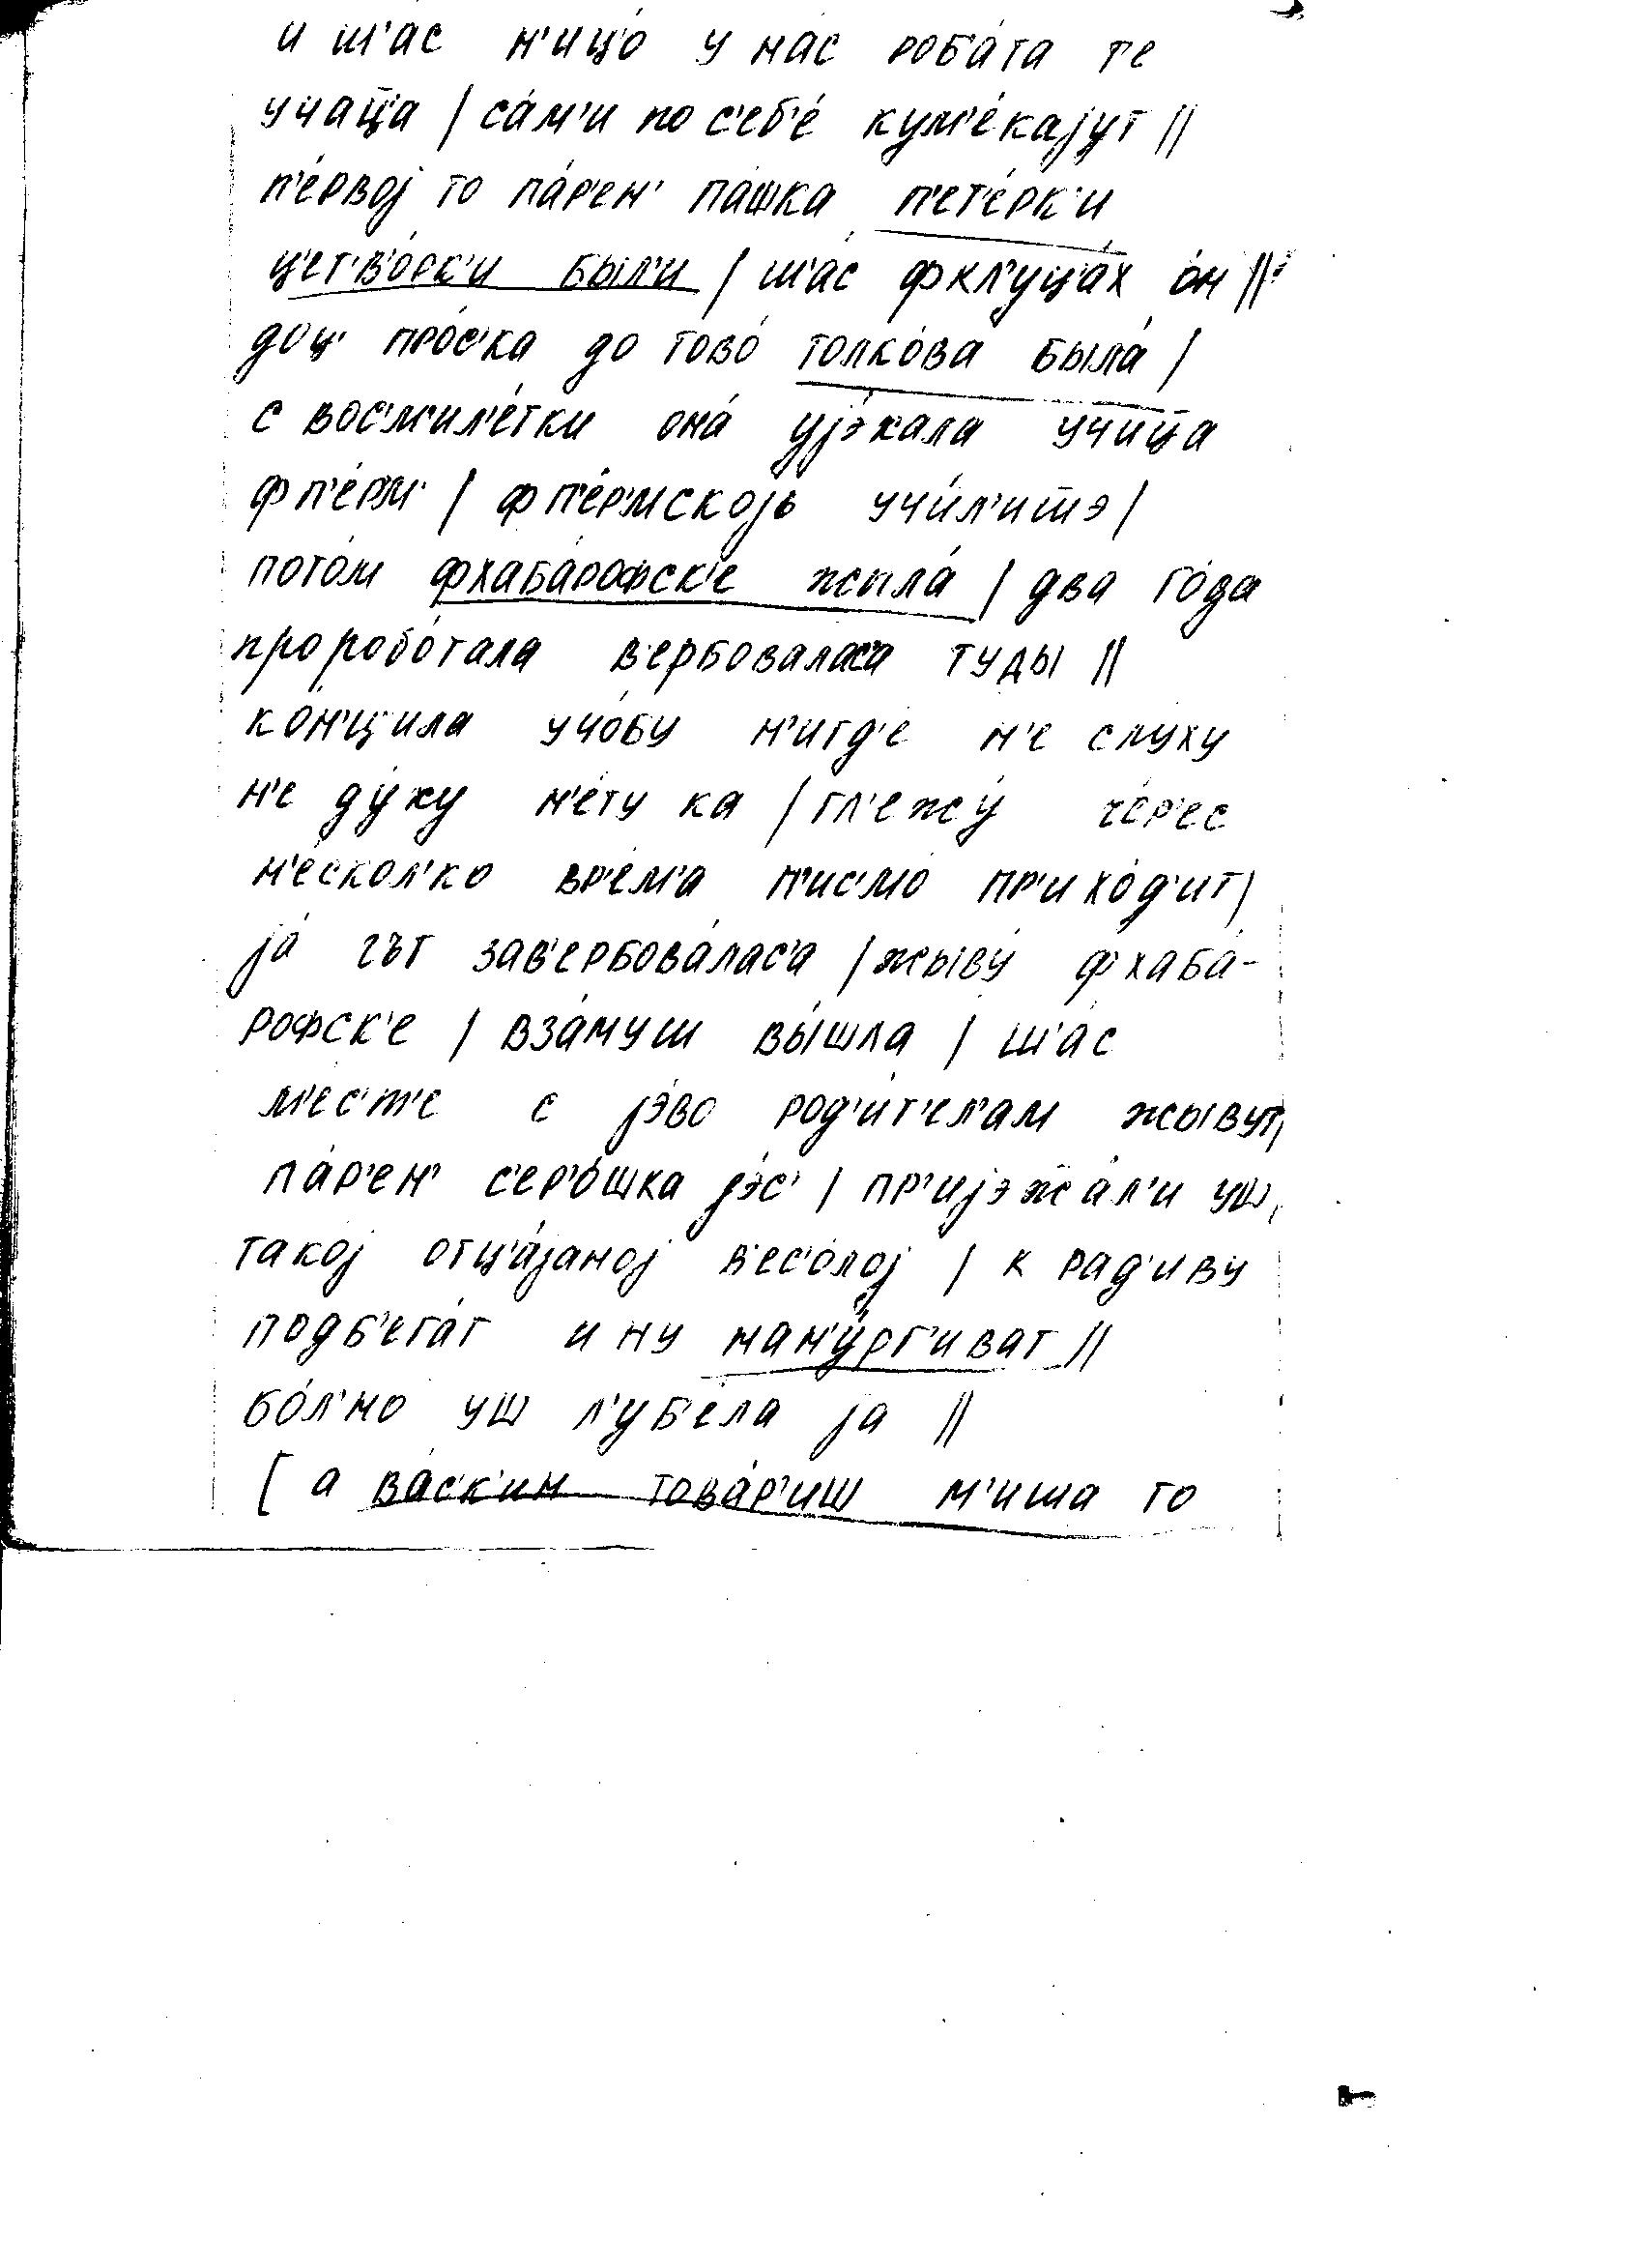 и ш'ас н'ицо́ у нас роба́та т'е
учац̄а | са́м'и по с'еб'е́ кум'е́кајут ||
п'е́рвој то па́р'ен' па́шка п'ет'е́рк'и
ц'ет'в'о́рк'и был'и | ш'а́с фкл'уца́х о́н ||
доц' про́с'ка до тово́ толко́ва была́ |
с вос'мил'е́тки она́ ујэ́хала учиц̄а
фп'е́рм' | фп'е́рмскојь учи́л'ишэ |
пото́м фхаба́рофск'е жыла́ | два го́да
проробо́тала в'ербовалас'а туды ||
ко́н'ц'ила учо́бу н'игд'е́ н'е слуху
н'е ду́ху н'е́ту ка | гл'ежу́ че́р'ес
н'е́скол'ко вр'е́м'а п'ис'мо́ пр'ихо́д'ит |
ја́ гът зав'ербова́лас'а | жыву́ фхаба́-
рофск'е | вза́муш вы́шла | ш'а́с
м'ес'т'е с јэ́во род'и́т'ел'ам жывут |
па́р'ен' с'ер'о́шка јэ́с' | пр'ијэж̄а́л'и уш |
такој отц'а́јаној в'ес'о́лој | к рад'иву
подб'ега́т и ну нан'у́рг'иват ||
бо́л'но уш л'уб'е́ла ја ||
[ а ва́с'к'ин това́р'иш м'иша то